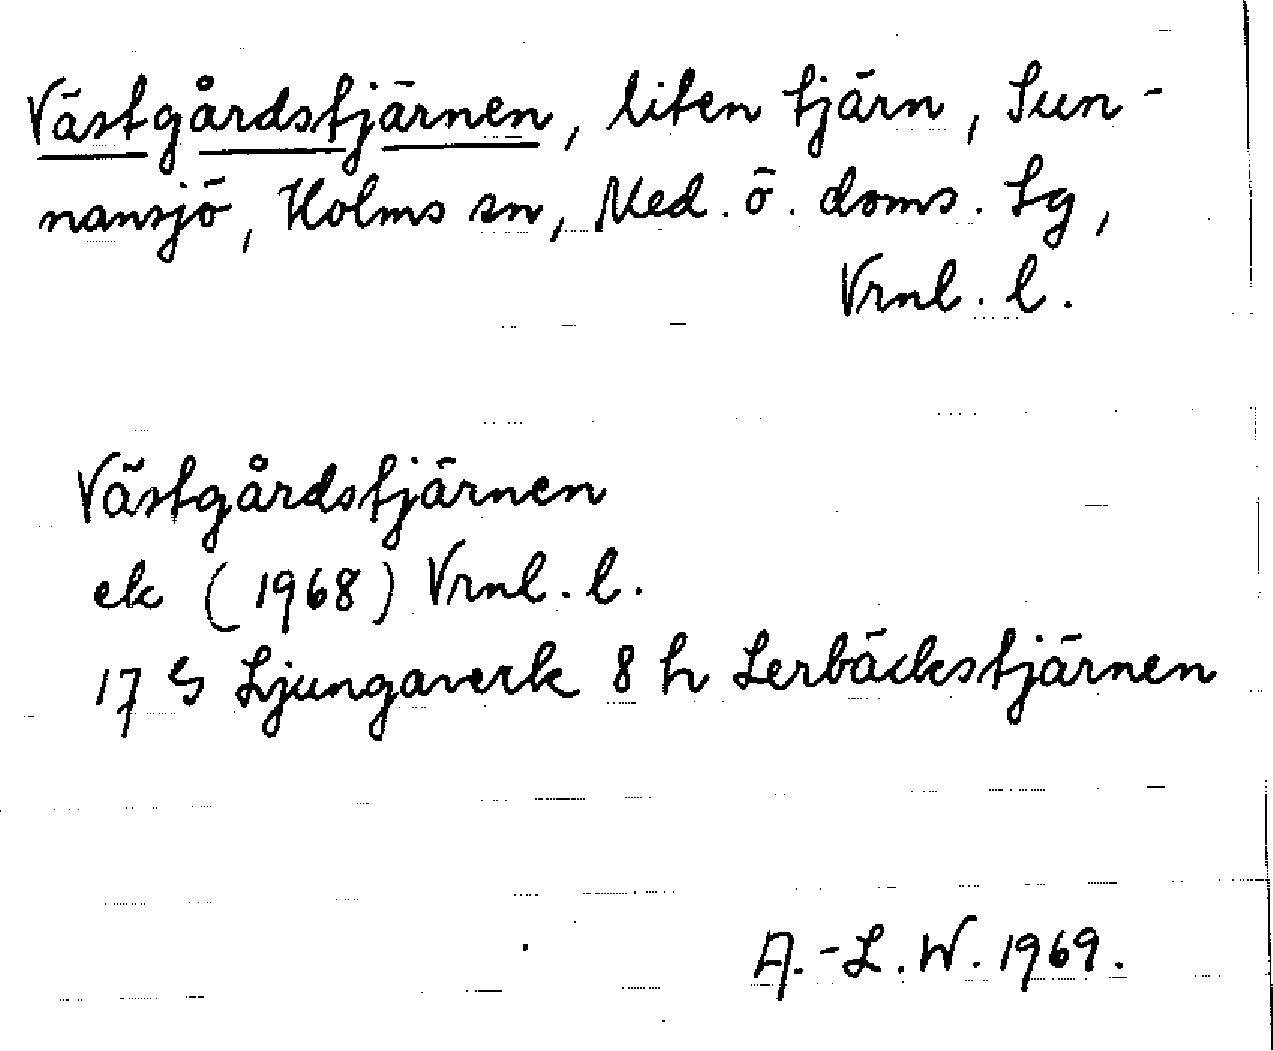 Västgårdstjärnen, liten tjärn, Sun-
nansjö, Holms sn, Med. ö. doms. Lg,
Vrnl. l.
Västgårdstjärnen
ek (1968) Vrnl. l.
17 G Ljungaverk 8 h Lerbäckstjärnen
A.-L. W. 1969.